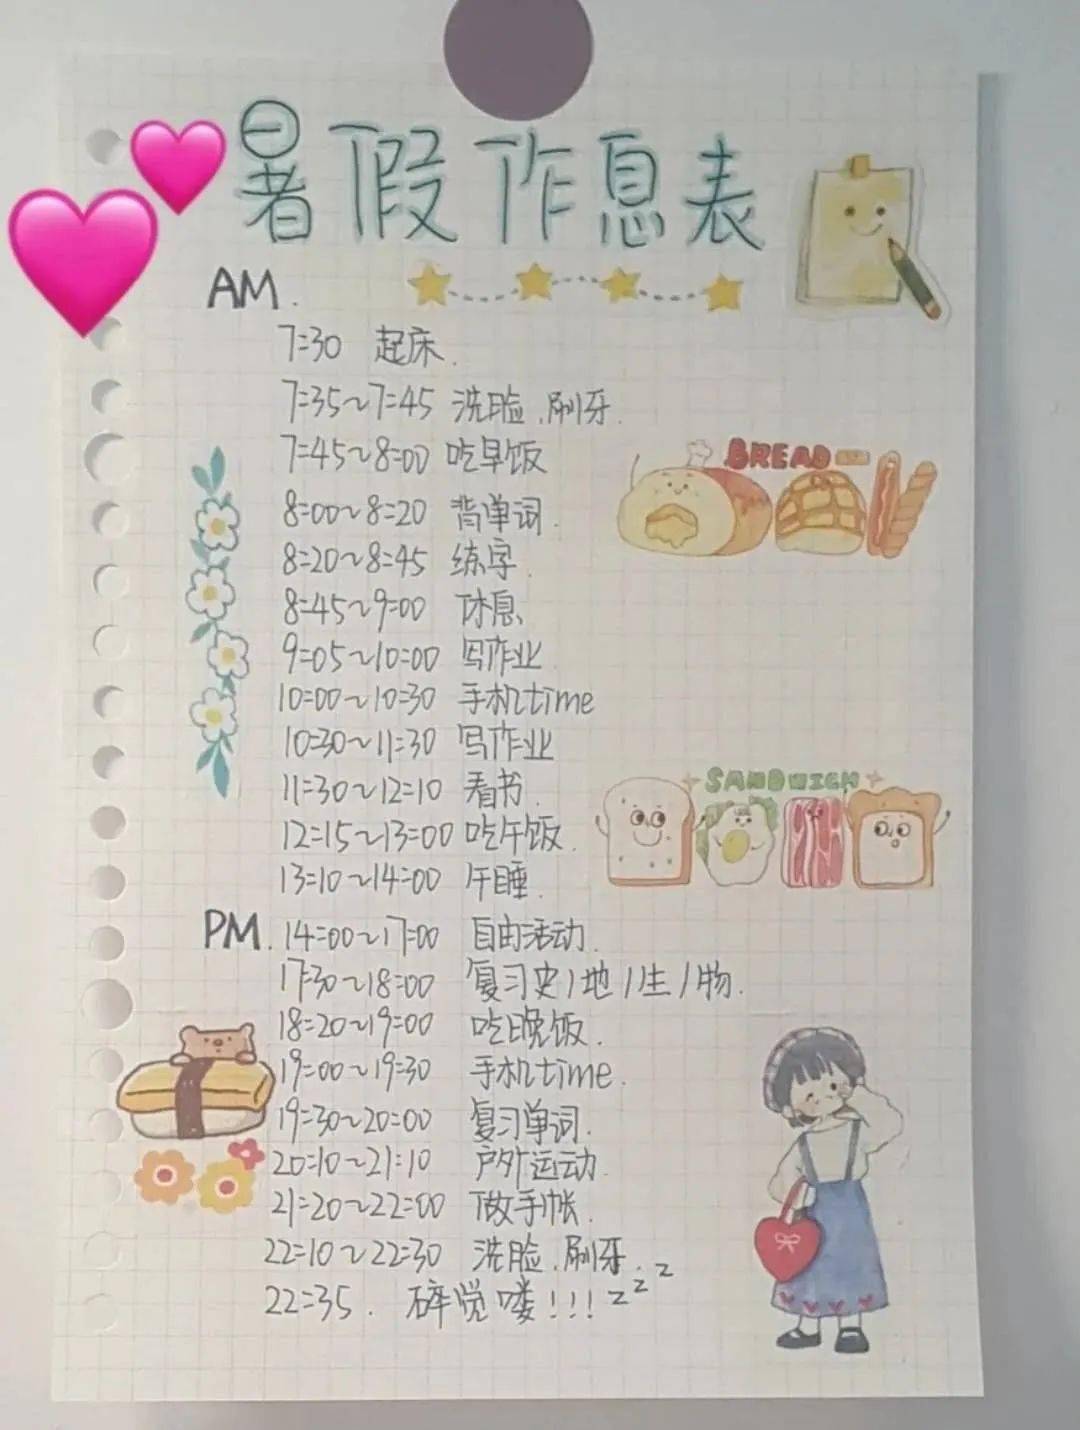 暑假作息表
AM.
7:30 起床.
7:35~7:45 洗脸、刷牙.
7:45~8:00 吃早饭
BREAD
8:00~8:20 背单词.
8:20~8:45 练字.
8:45~9:00 休息
9:05~10:00 写作业
10:00~10:30 手机time
10:30~11:30 写作业
11:30~12:10 看书.
SANDWICH
12:15~13:00 吃午饭.
13:10~14:00 午睡.
PM. 14:00~17:00 自由活动.
17:30~18:00 复习史/地/生/物.
18:20~19:00 吃晚饭.
19:00~19:30 手机time.
19:30~20:00 复习单词.
20:10~21:10 户外运动.
21:20~22:00 做手帐.
22:10~22:30 洗脸、刷牙.
22:35. 碎觉喽!!!zzz